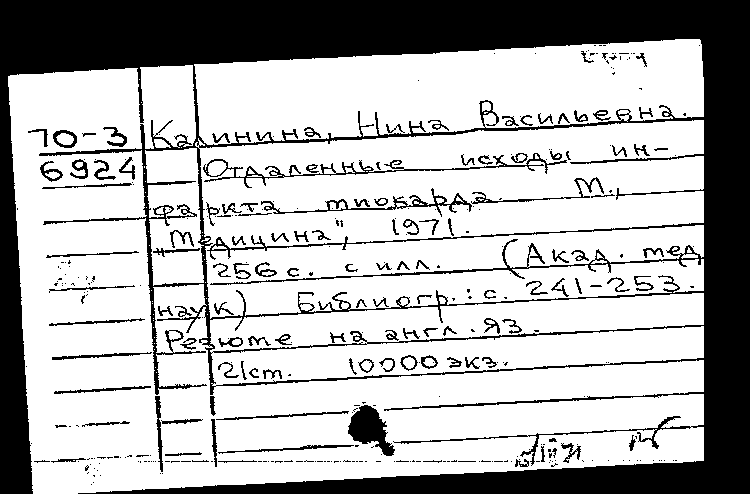 70-3 Калинина, Нина Васильевна.
6924 Отдаленные исходы ин-
фаркта миокарда М.,
„Медицина", 1971.
256 с. с илл. (Акад. мед
наук) Библиогр.: с. 241-253.
Резюме на англ. яз.
10000 экз.